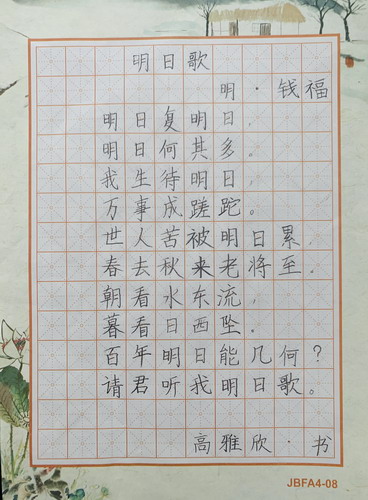 明日歌
明·钱福
明日复明日，
明日何其多。
我生待明日，
万事成蹉跎。
世人苦被明日累，
春去秋来老将至。
朝看水东流，
暮看日西坠。
百年明日能几何？
请君听我明日歌。
高雅欣·书
JBFA4-08